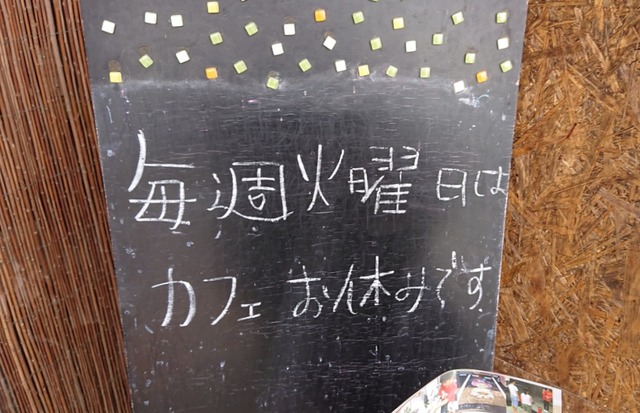 毎週火曜日は
カフェ お休みです